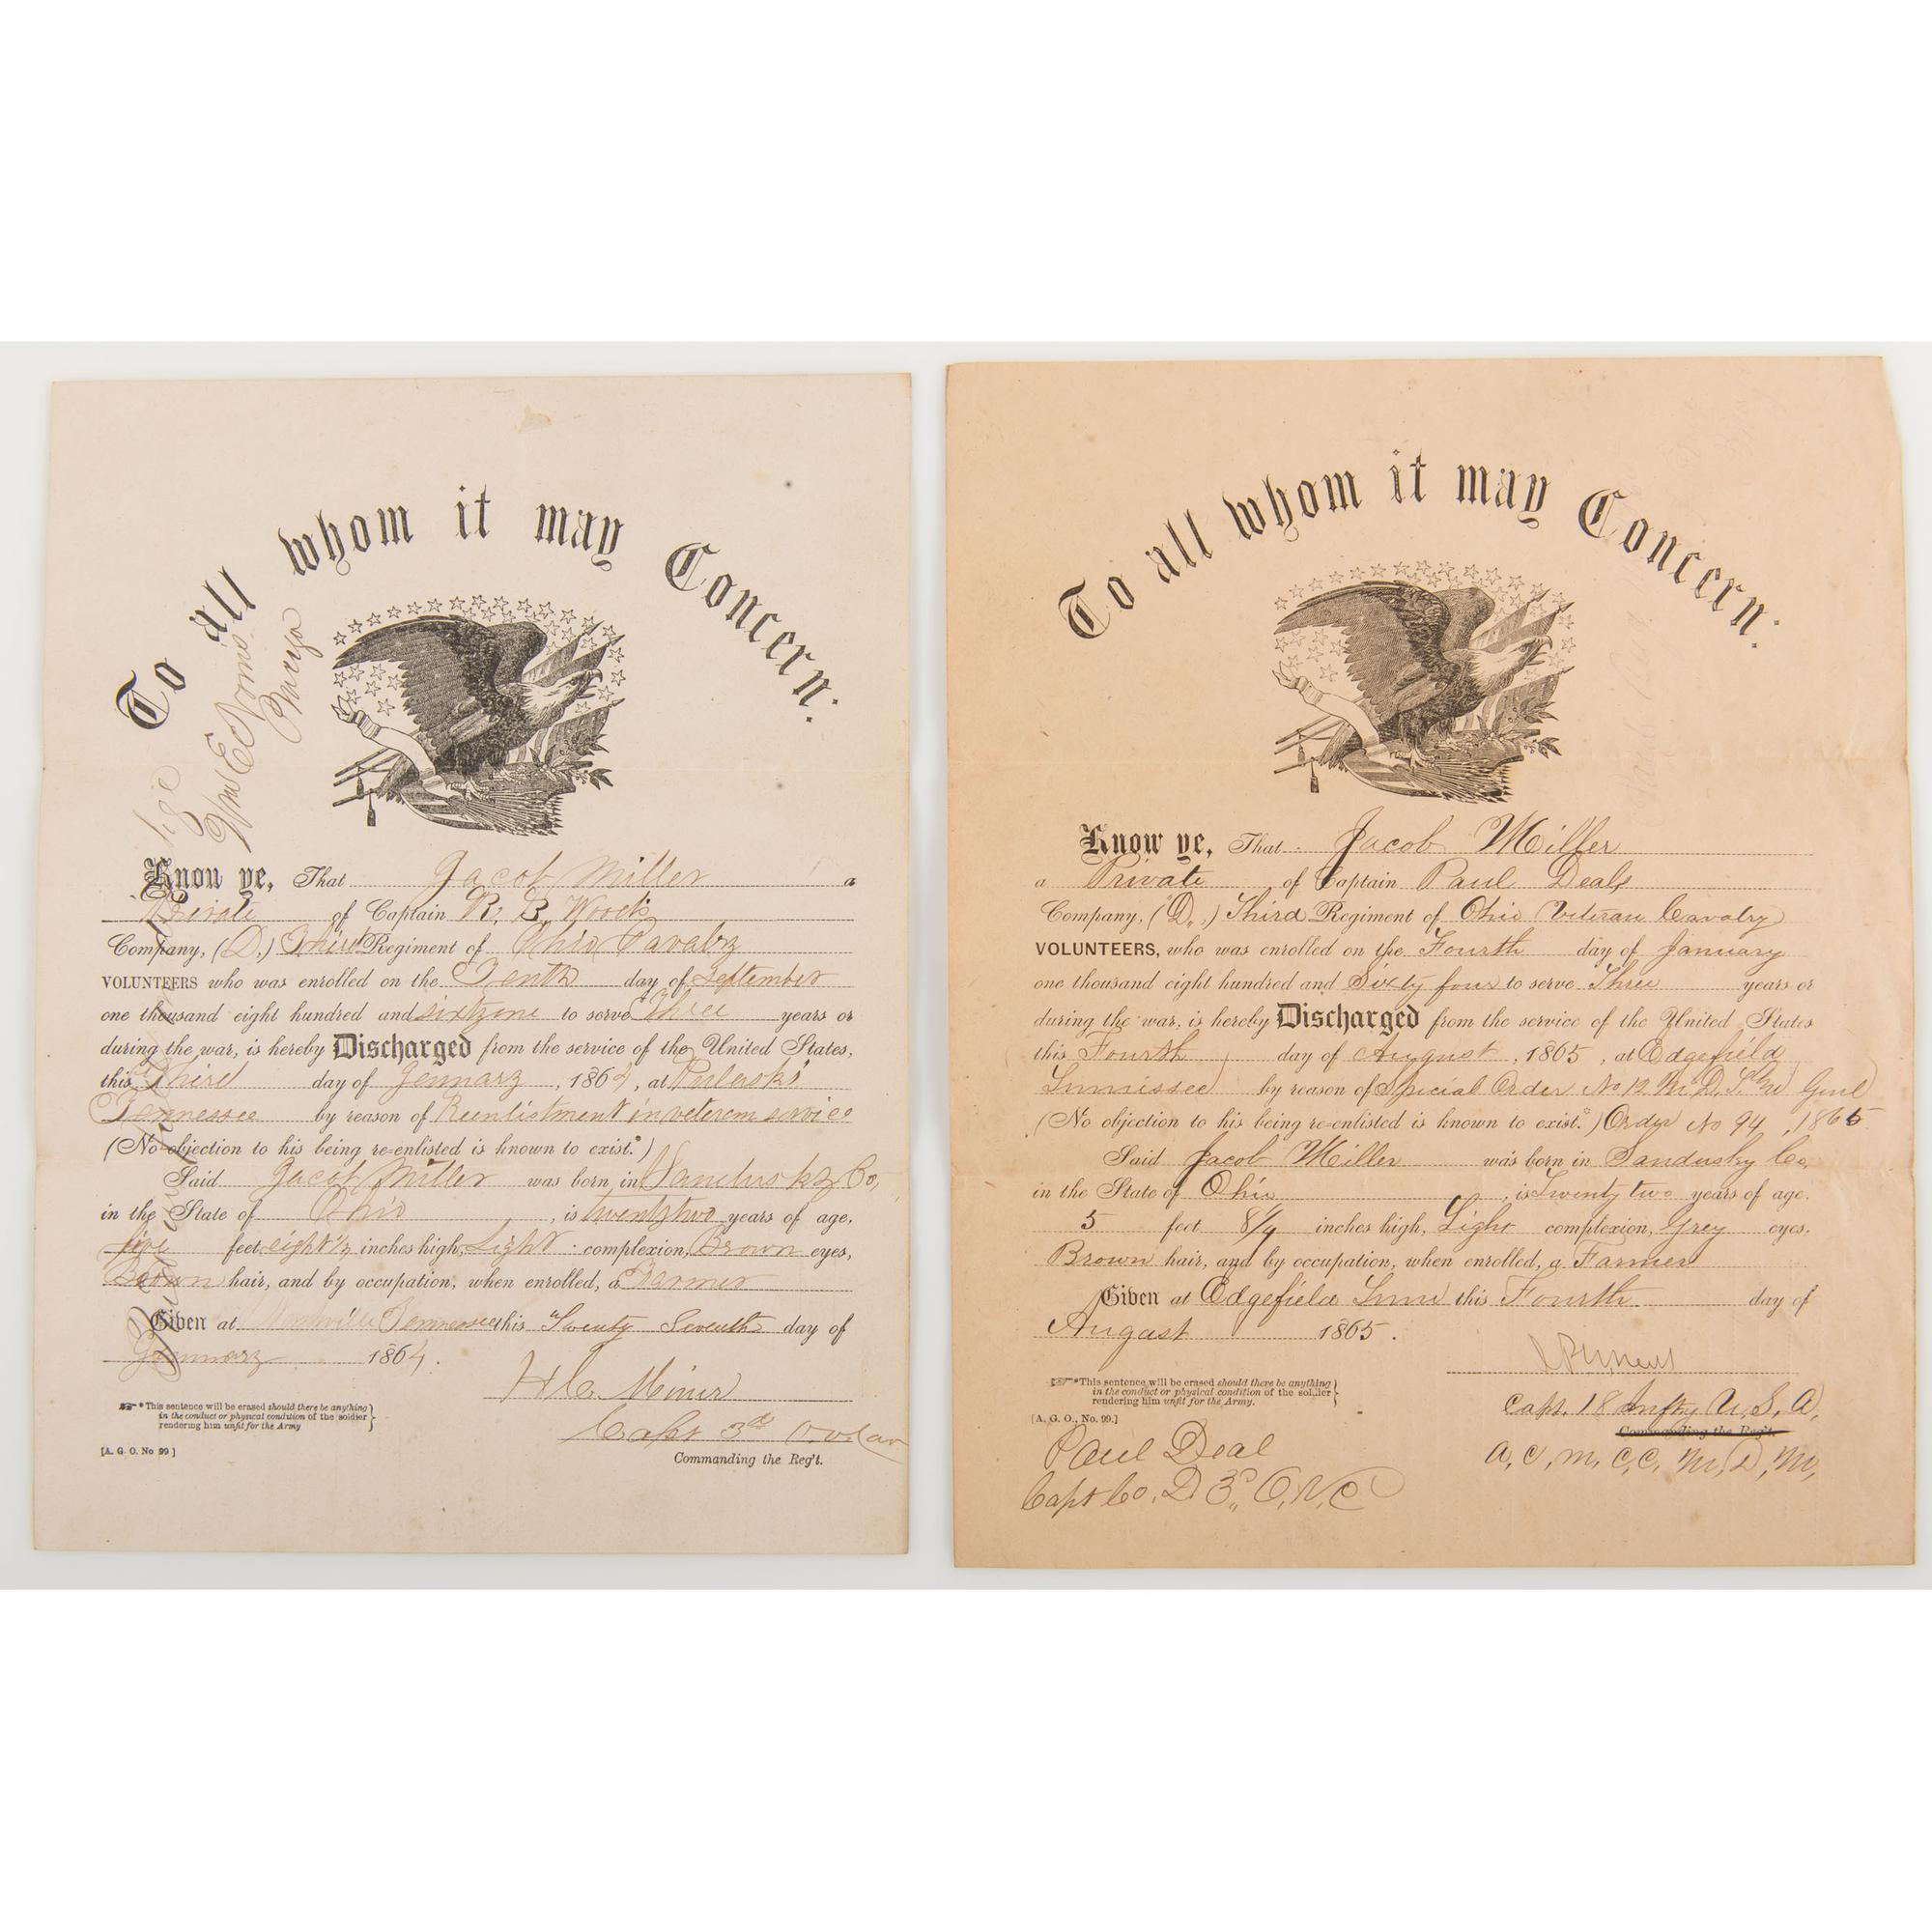 To all whom it may Concern:
Know ye, That Jacob Miller a
Private of Captain R. B. Wood's
Company, (D.) Third Regiment of Ohio Cavalry
VOLUNTEERS who was enrolled on the Tenth day of September
one thousand eight hundred and sixtyone to serve Three years or
during the war, is hereby Discharged from the service of the United States,
this Third day of Jennary, 1864, at Pulaski
Tennessee by reason of Reenlistment in veteran service
(No objection to his being re-enlisted is known to exist.*)
Said Jacob Miller was born in Sandusky Co,
in the State of Ohio, is twentytwo years of age,
five feet eight ½ inches high, Light complexion, Brown eyes,
Brown hair, and by occupation, when enrolled, a Farmer
Given at Nashville Tennessee this Twenty Seventh day of
Jennary 1864.
H C. Miner
Capt 3d O.V.Cav
Commanding the Reg't.
*This sentence will be erased should there be anything
in the conduct or physical condition of the soldier
rendering him unfit for the Army
[A. G. O. No 99]
Paymaster
To all whom it may Concern:
Know ye, That Jacob Miller
a Private of Captain Paul Deals
Company, (D.,) Third Regiment of Ohio Veteran Cavalry
VOLUNTEERS, who was enrolled on the Fourth day of January
one thousand eight hundred and Sixty four to serve Three years or
during the war, is hereby Discharged from the service of the United States
this Fourth day of August, 1865, at Edgefield
Tennissee by reason of Special Order No 12 M. D. T. Genl
(No objection to his being re-enlisted is known to exist.*) Order No 94, 1865
Said Jacob Miller was born in Sandusky Co,
in the State of Ohio, is Twenty two years of age.
5 feet 8¼ inches high, Light complexion, Grey eyes.
Brown hair, and by occupation, when enrolled, a Farmer
Given at Edgefield Tenn this Fourth day of
August 1865.
Capt. 18 Infty U, S, A,
Commanding the Reg't.
A, C, M, C, C, M, D, M,
*This sentence will be erased should there be anything
in the conduct or physical condition of the soldier
rendering him unfit for the Army.
[A. G. O., No. 99.]
Paul Deal
Capt Co, D 3" O, V, C